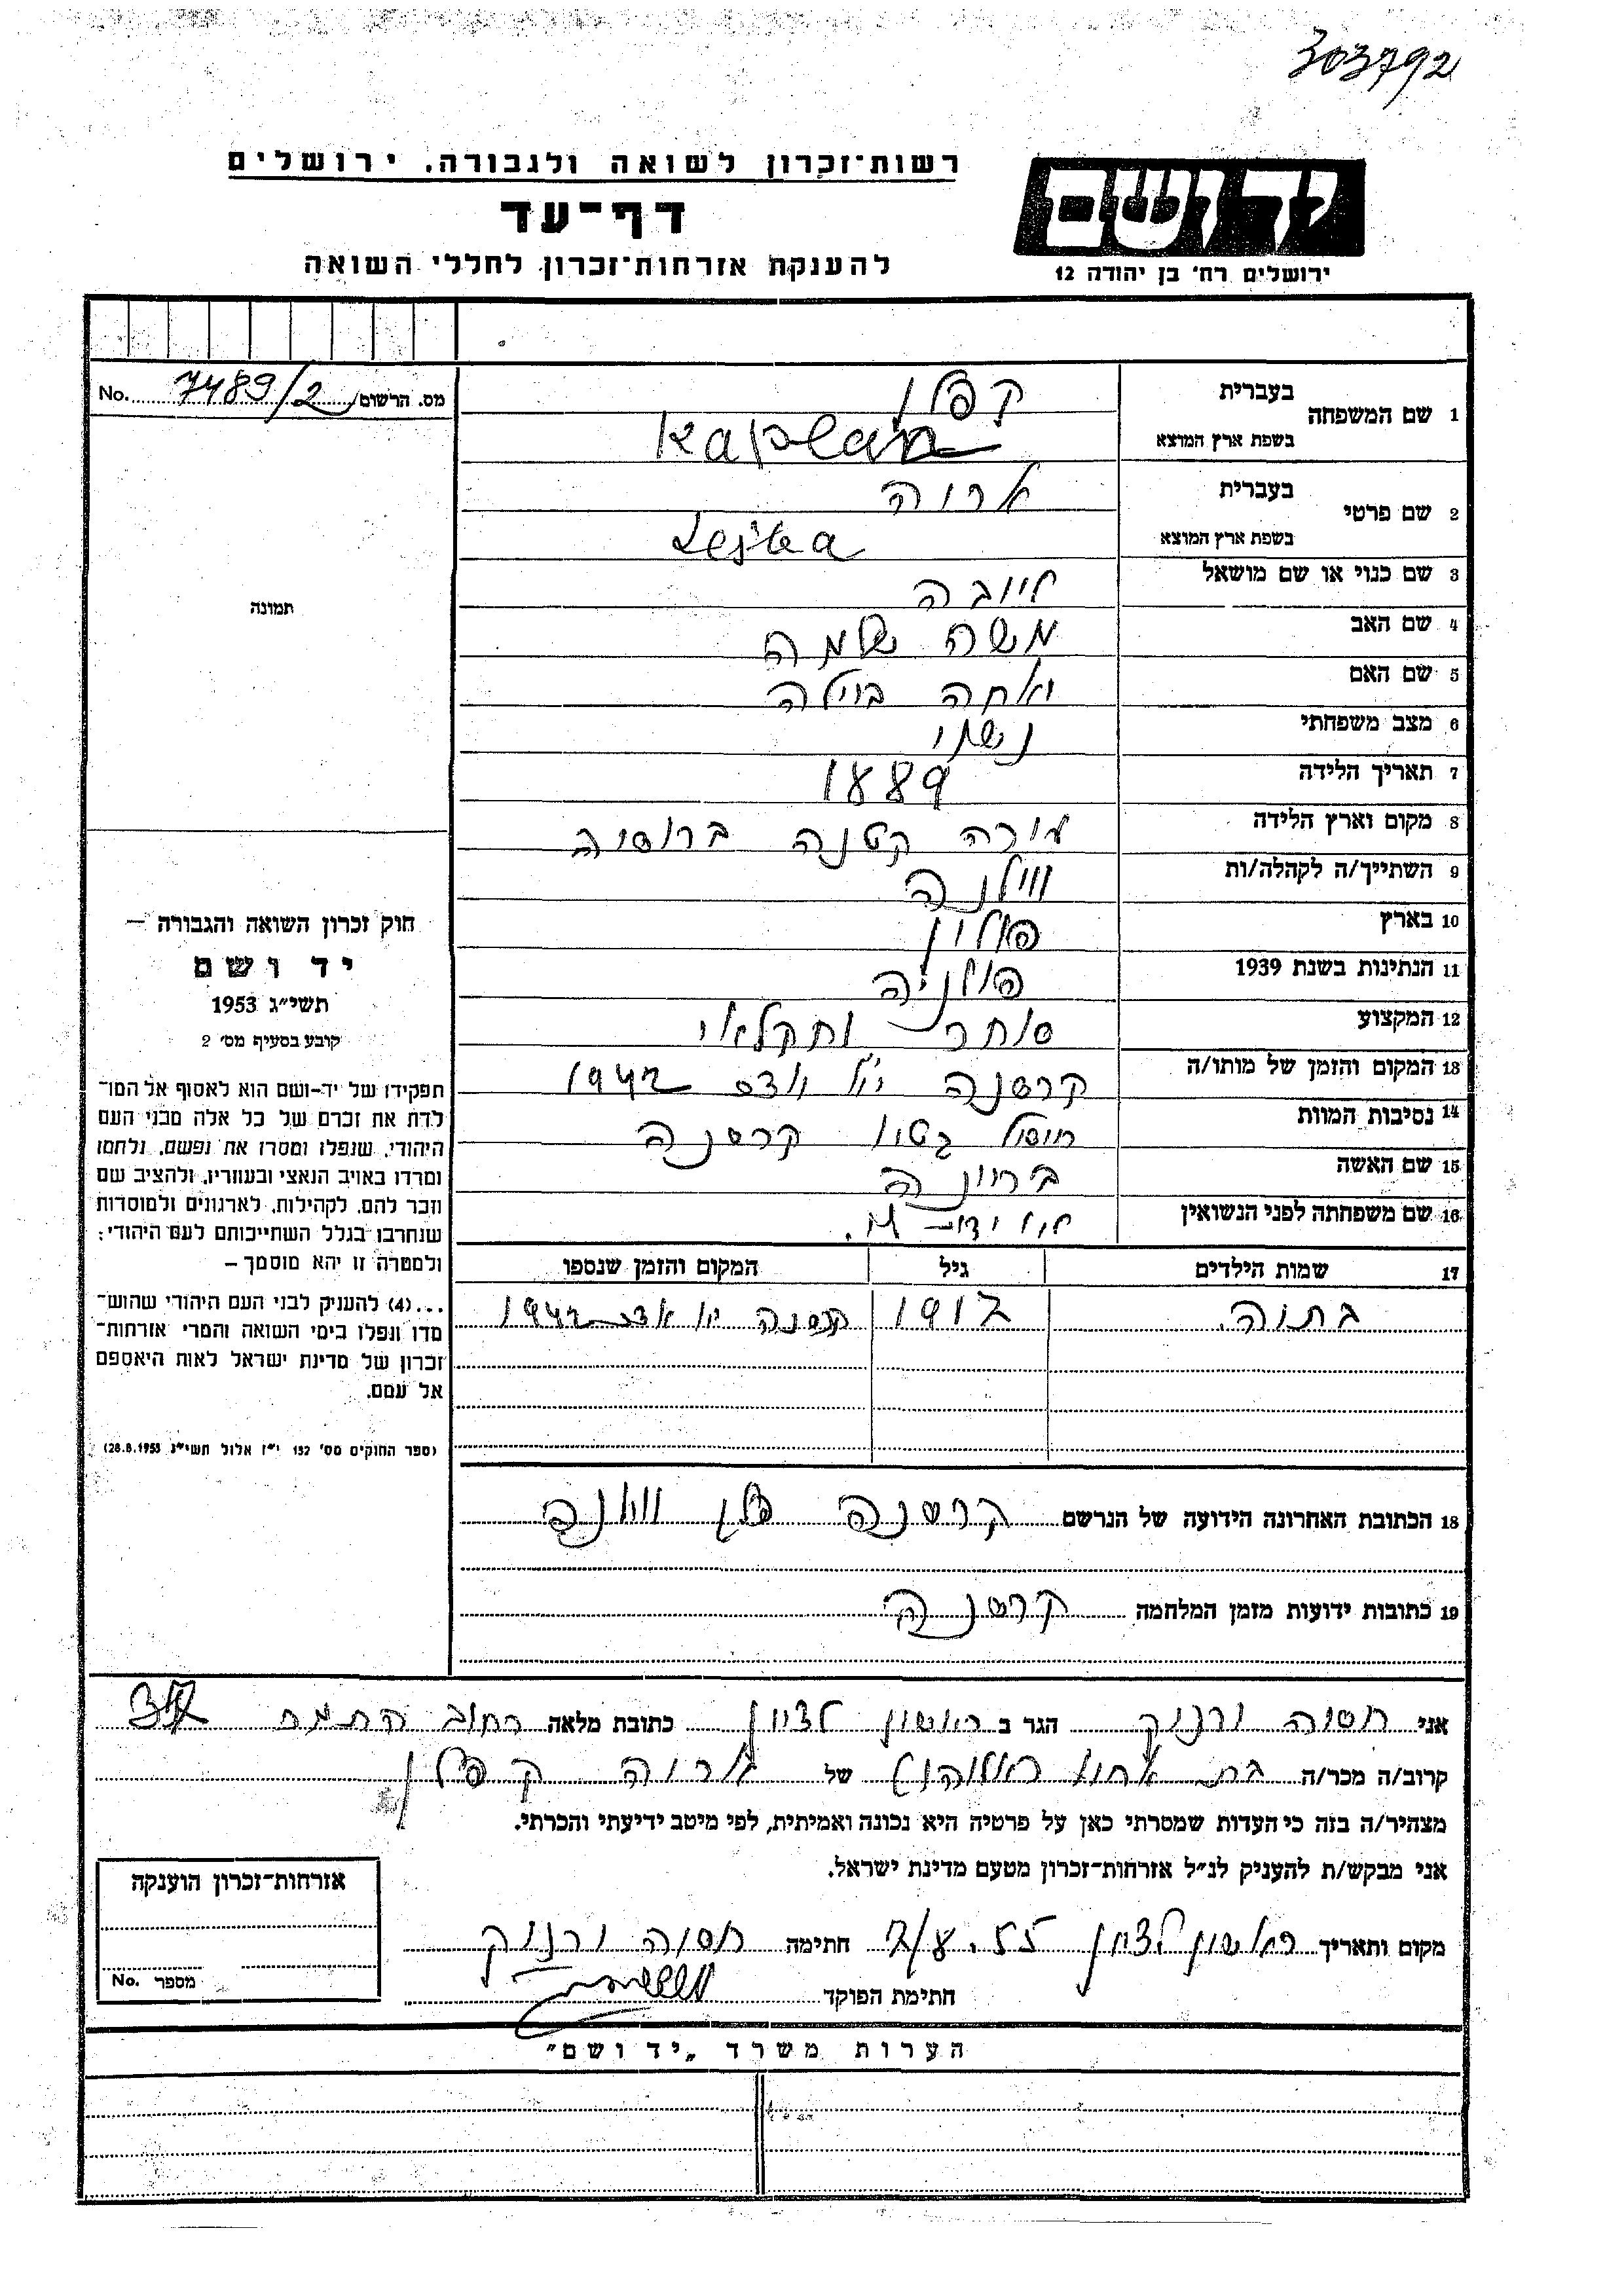 303792
רשות־זכרון לשואה ולגבורה. ירושלים
דף־עד
להענקת אזרחות־זכרון לחללי השואה
יד ושם
ירושלים רח' בן יהודה 12
מס. הרשום 7489/2 No.
1 שם המשפחה בעברית קפלן
בשפת ארץ המוצא Kaplan
2 שם פרטי בעברית אריה
בשפת ארץ המוצא Lejba
3 שם כנוי או שם מושאל לייבה
4 שם האב משה שלמה
5 שם האם בילה
6 מצב משפחתי נשוי
7 תאריך הלידה 1889
8 מקום וארץ הלידה עירה קטנה ברוסיה
9 השתייך/ה לקהלה/ות ווילנה
10 בארץ פולין
11 הנתינות בשנת 1939 פולניה
12 המקצוע סוחר וחקלאי
13 המקום והזמן של מותו/ה 1942
14 נסיבות המוות חיסול גטו
15 שם האשה
16 שם משפחתה לפני הנשואין
17 שמות הילדים גיל המקום והזמן שנספו
1917 1942
18 הכתובת האחרונה הידועה של הנרשם
19 כתובות ידועות מזמן המלחמה
תמונה
חוק זכרון השואה והגבורה –
יד ושם
תשי"ג 1953
קובע בסעיף מס' 2
תפקידו של יד-ושם הוא לאסוף אל המו־
לדת את זכרם של כל אלה מבני העם
היהודי, שנפלו ומסרו את נפשם, נלחמו
ומרדו באויב הנאצי ובעוזריו, ולהציב שם
וזכר להם, לקהילות, לארגונים ולמוסדות
שנחרבו בגלל השתייכותם לעם היהודי;
ולמטרה זו יהא מוסמך –
...(4) להעניק לבני העם היהודי שהוש־
מדו ונפלו בימי השואה והמרי אזרחות־
זכרון של מדינת ישראל לאות היאספם
אל עמם.
(ספר החוקים מס' 132 י"ז אלול תשי"ג 28.8.1953)
אני חסיה הגר ב ראשון לציון כתובת מלאה רחוב
קרוב/ה מכר/ה בת של אריה קפלן
מצהיר/ה בזה כי העדות שמסרתי כאן על פרטיה היא נכונה ואמיתית, לפי מיטב ידיעתי והכרתי.
אני מבקש/ת להעניק לנ"ל אזרחות־זכרון מטעם מדינת ישראל.
מקום ותאריך ראשון לציון חתימה חסיה
חתימת הפוקד
אזרחות־זכרון הוענקה
מספר No.
הערות משרד „יד ושם"